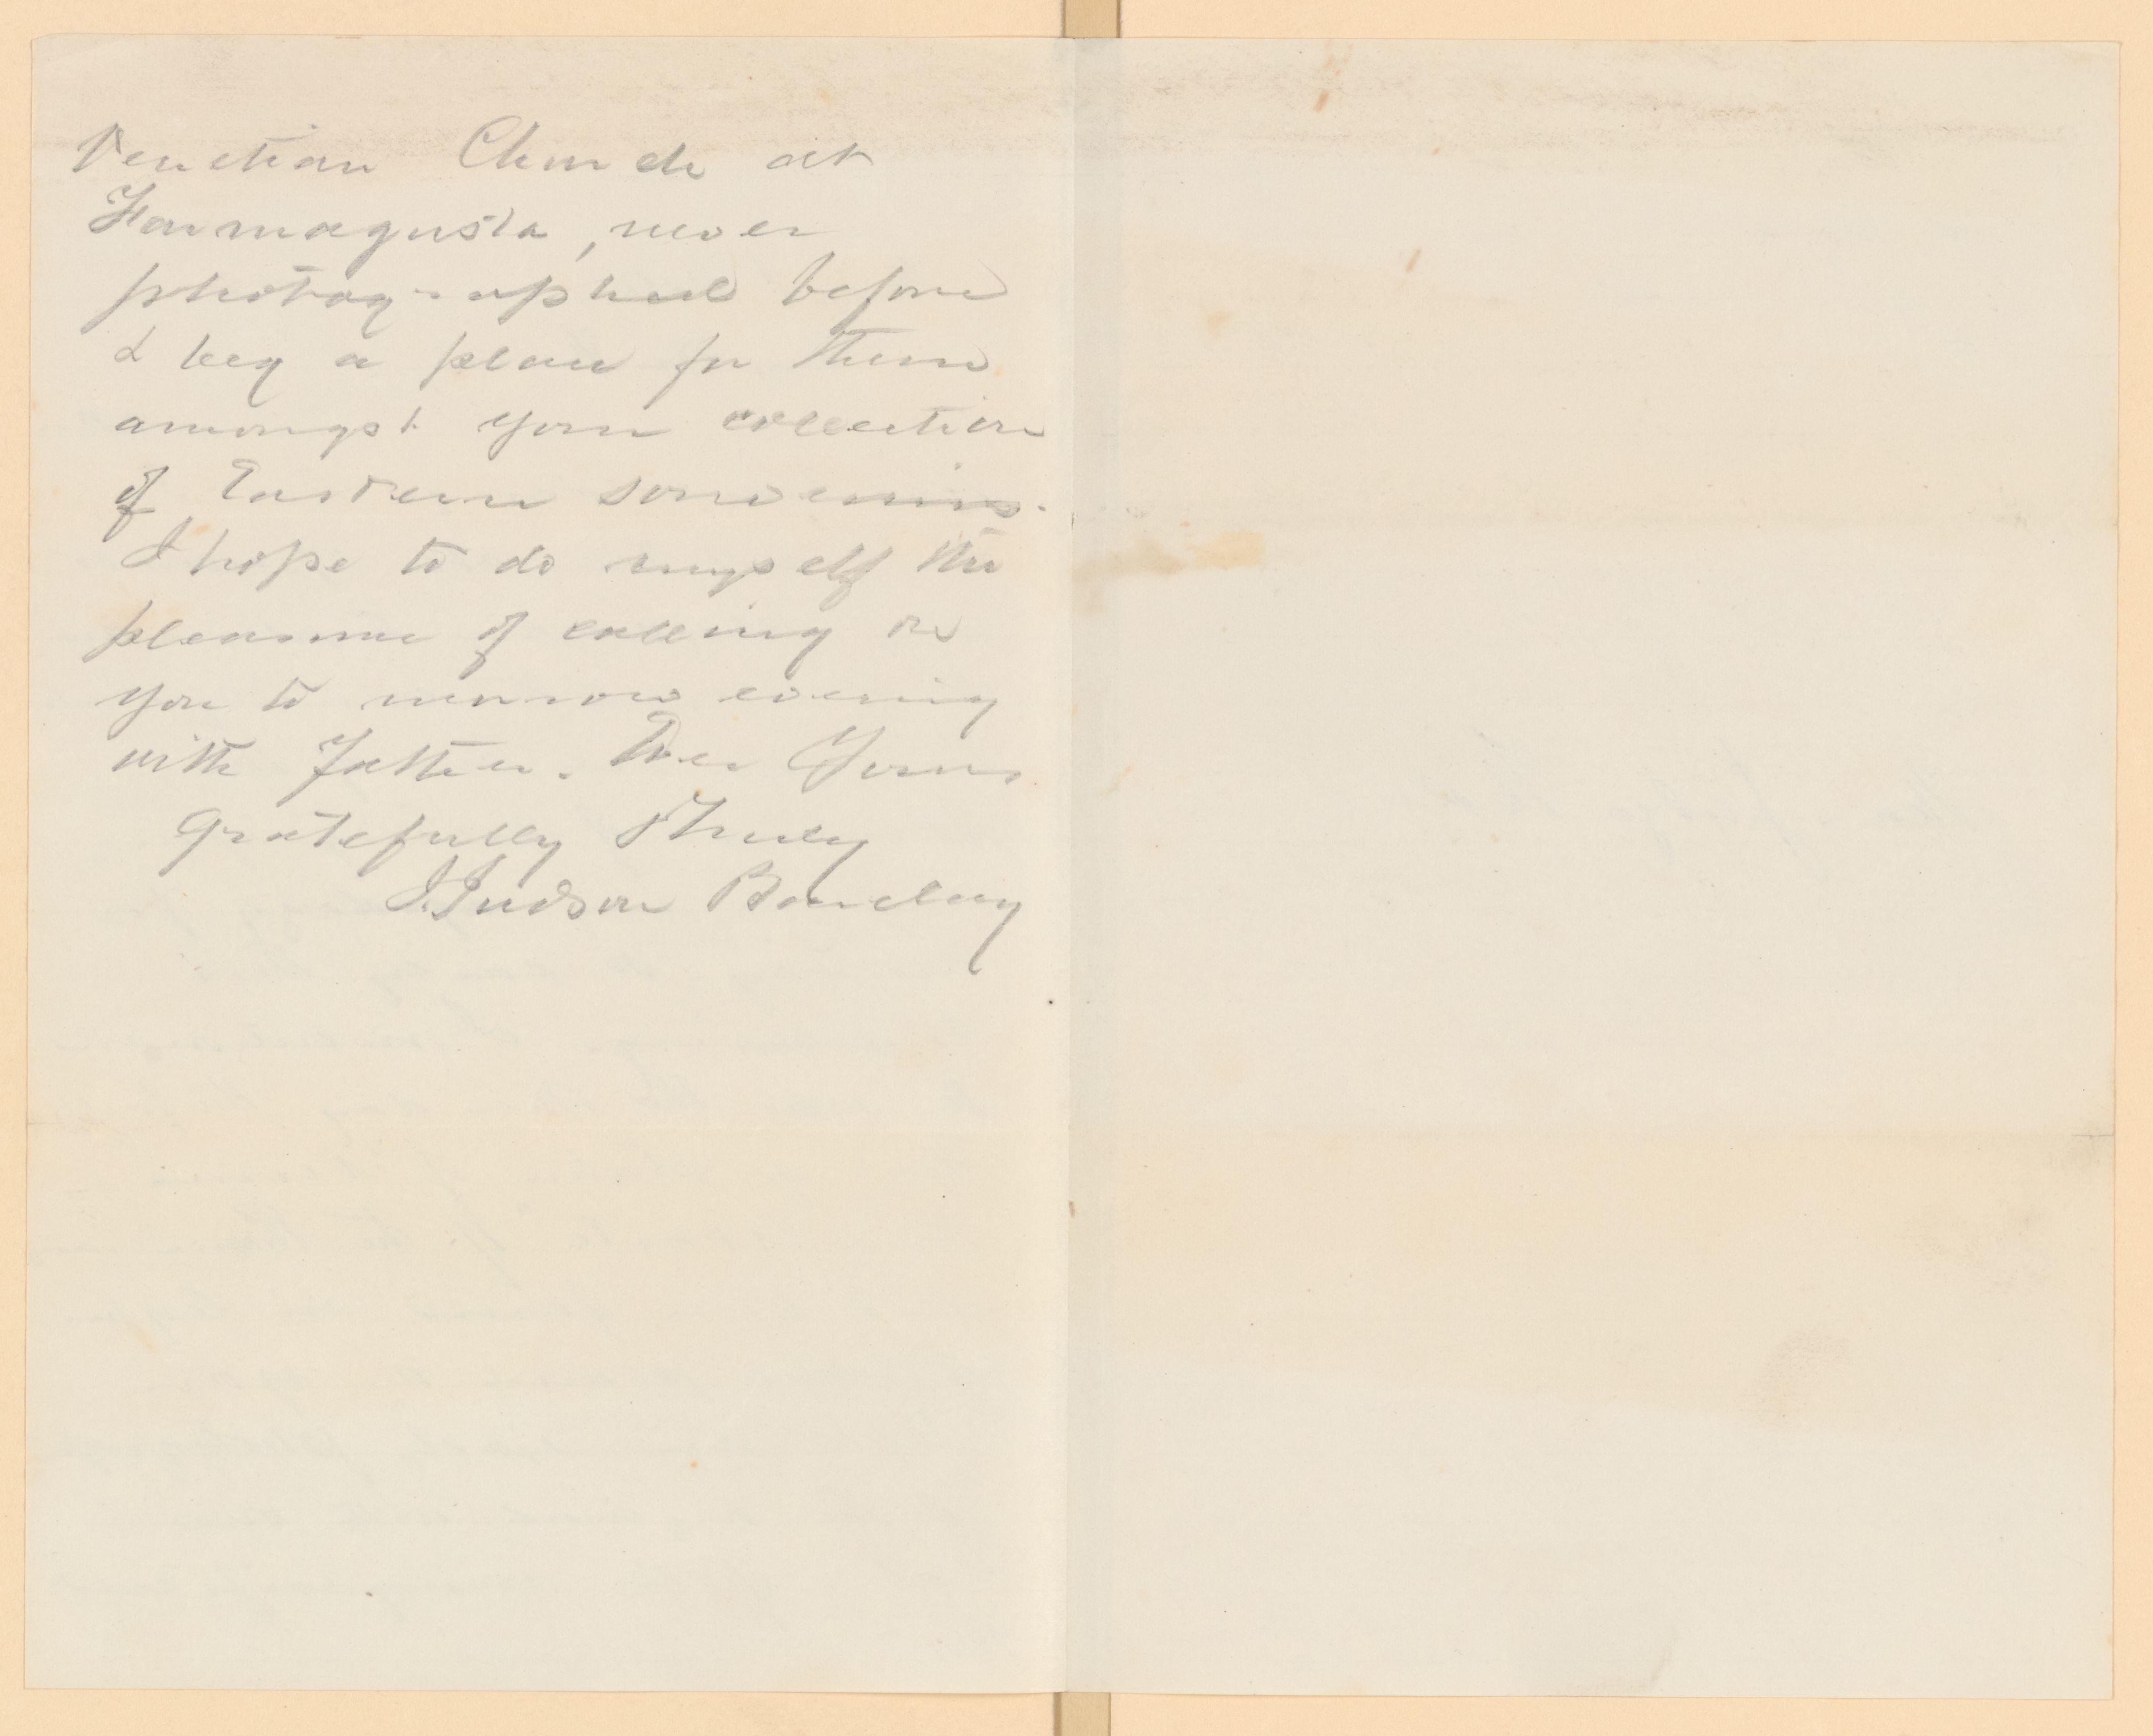 Venetian Church at
Farmagusta, never
photographed before
I beg a place for them
amongst your collection
of Eastern souvenirs.
I hope to do myself the
pleasure of calling on
you to morrow evening
with Father. Ever Yours
Gratefully & Truly
J. Judson Barclay